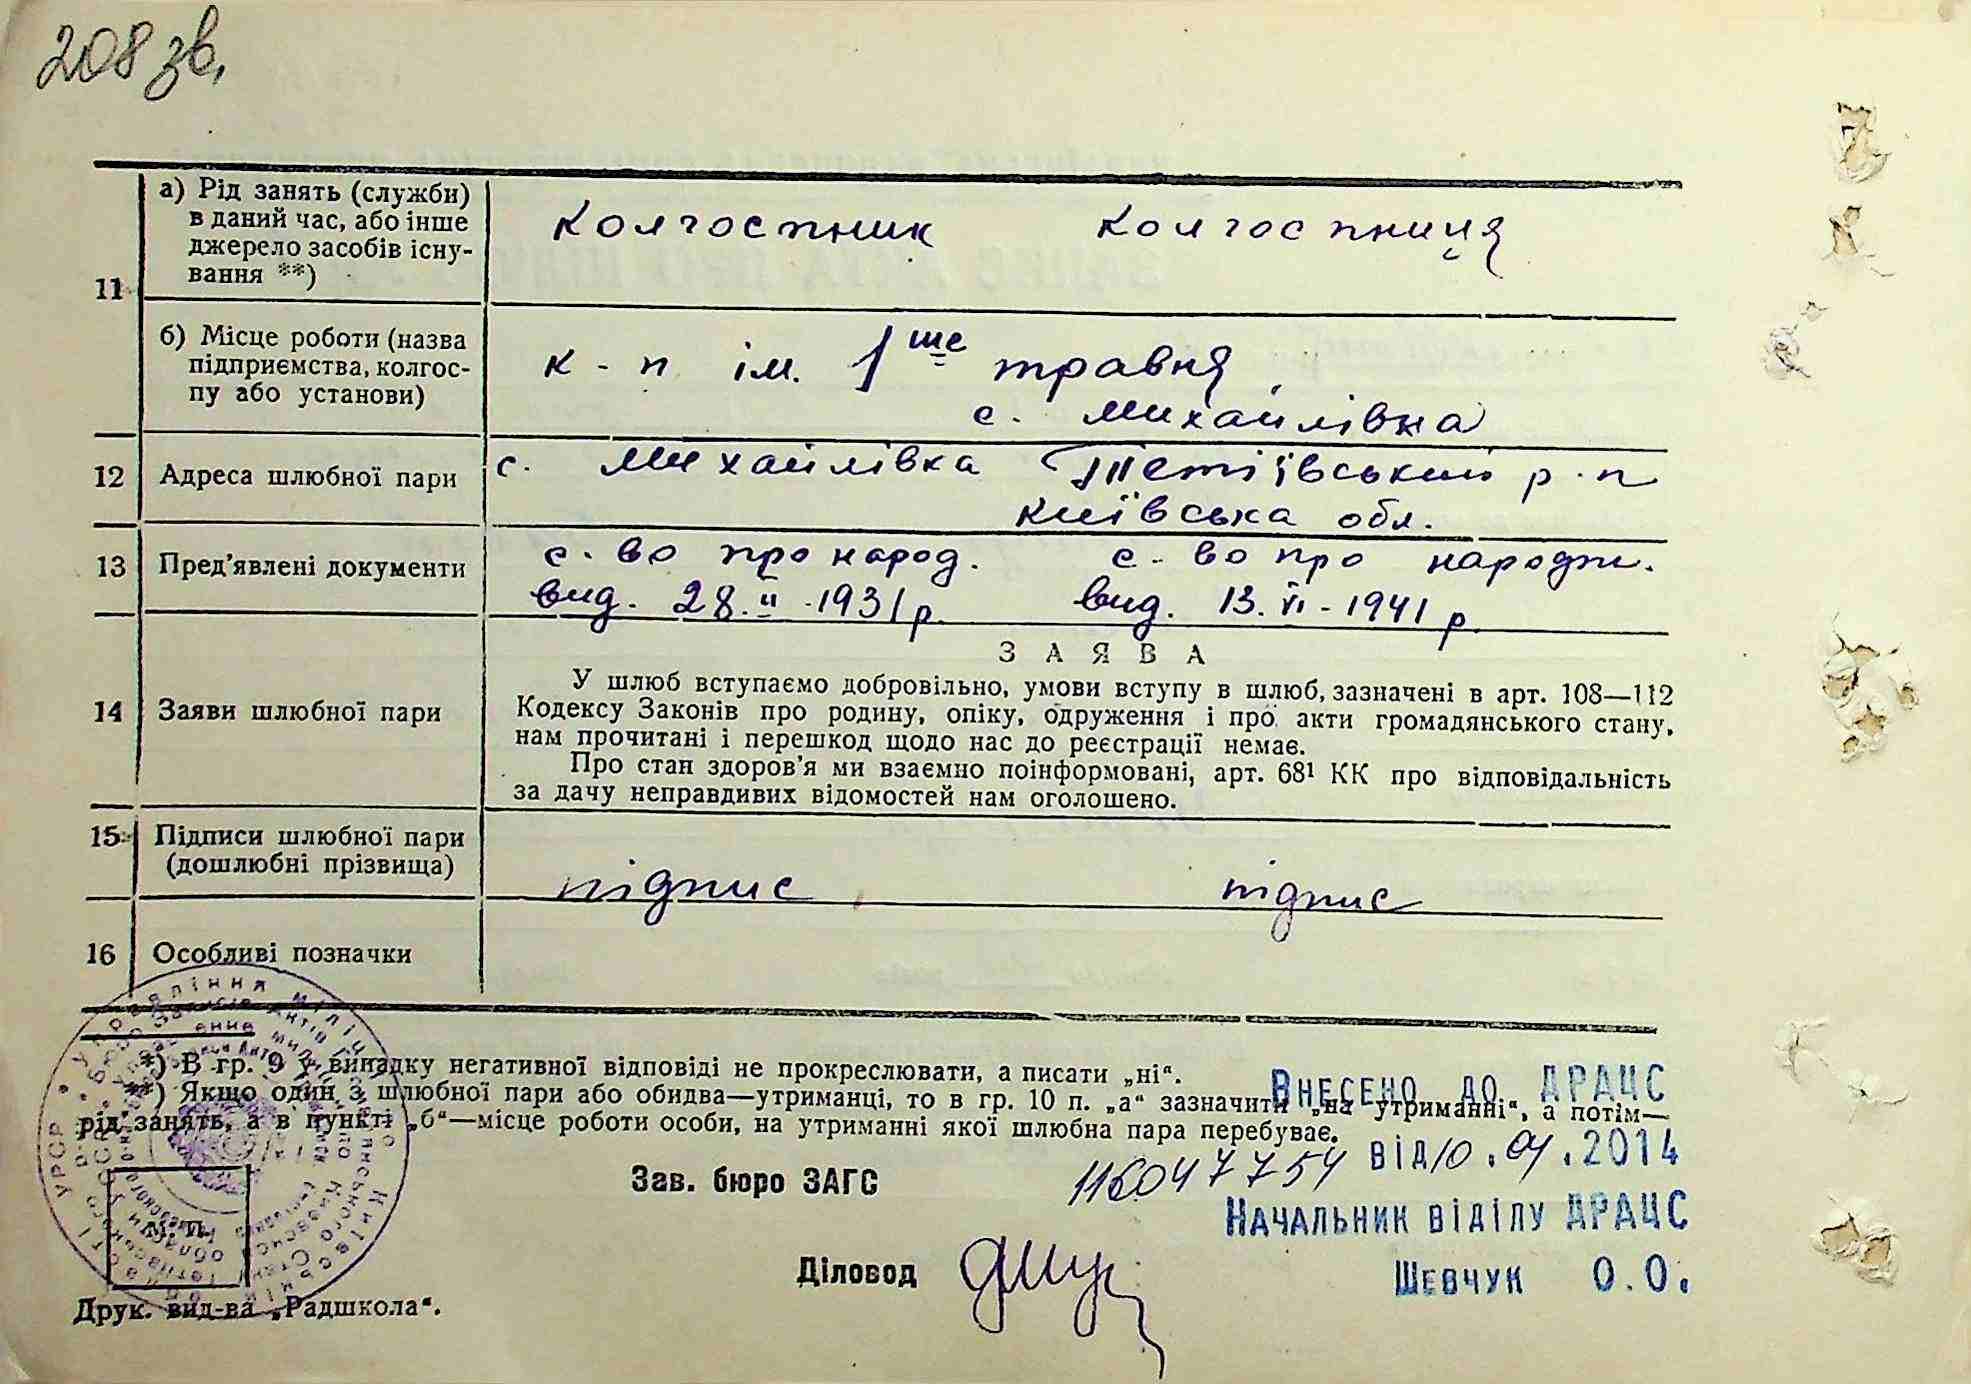 208 зв.
а) Рід занять (служби)
в даний час, або інше
джерело засобів існу-
вання **)
колгоспник колгоспниця
11
б) Місце роботи (назва
підприємства, колгос-
пу або установи)
к-п ім. 1 ше травня
с. Михайлівка
12 Адреса шлюбної пари с. Михайлівка Тетіївський р-н
Київська обл.
13 Пред'явлені документи с-во про народ. с-во про народж.
вид. 28.II-1931 р. вид. 13.VI-1941 р.
ЗАЯВА
14 Заяви шлюбної пари
У шлюб вступаємо добровільно, умови вступу в шлюб, зазначені в арт. 108—112
Кодексу Законів про родину, опіку, одруження і про акти громадянського стану,
нам прочитані і перешкод щодо нас до реєстрації немає.
Про стан здоров'я ми взаємно поінформовані, арт. 68¹ КК про відповідальність
за дачу неправдивих відомостей нам оголошено.
15 Підписи шлюбної пари
(дошлюбні прізвища)
підпис підпис
16 Особливі позначки
*) В гр. 9 у випадку негативної відповіді не прокреслювати, а писати „ні“.
**) Якщо один з шлюбної пари або обидва—утриманці, то в гр. 10 п. „а“ зазначити „на утриманні“, а потім—
рід занять, а в пункті „б“—місце роботи особи, на утриманні якої шлюбна пара перебуває.
Внесено до ДРАЦС
116047754 від 10.04.2014
Зав. бюро ЗАГС
Начальник відділу ДРАЦС
М. П.
Діловод
Шевчук О.О.
Друк. вид-ва „Радшкола“.